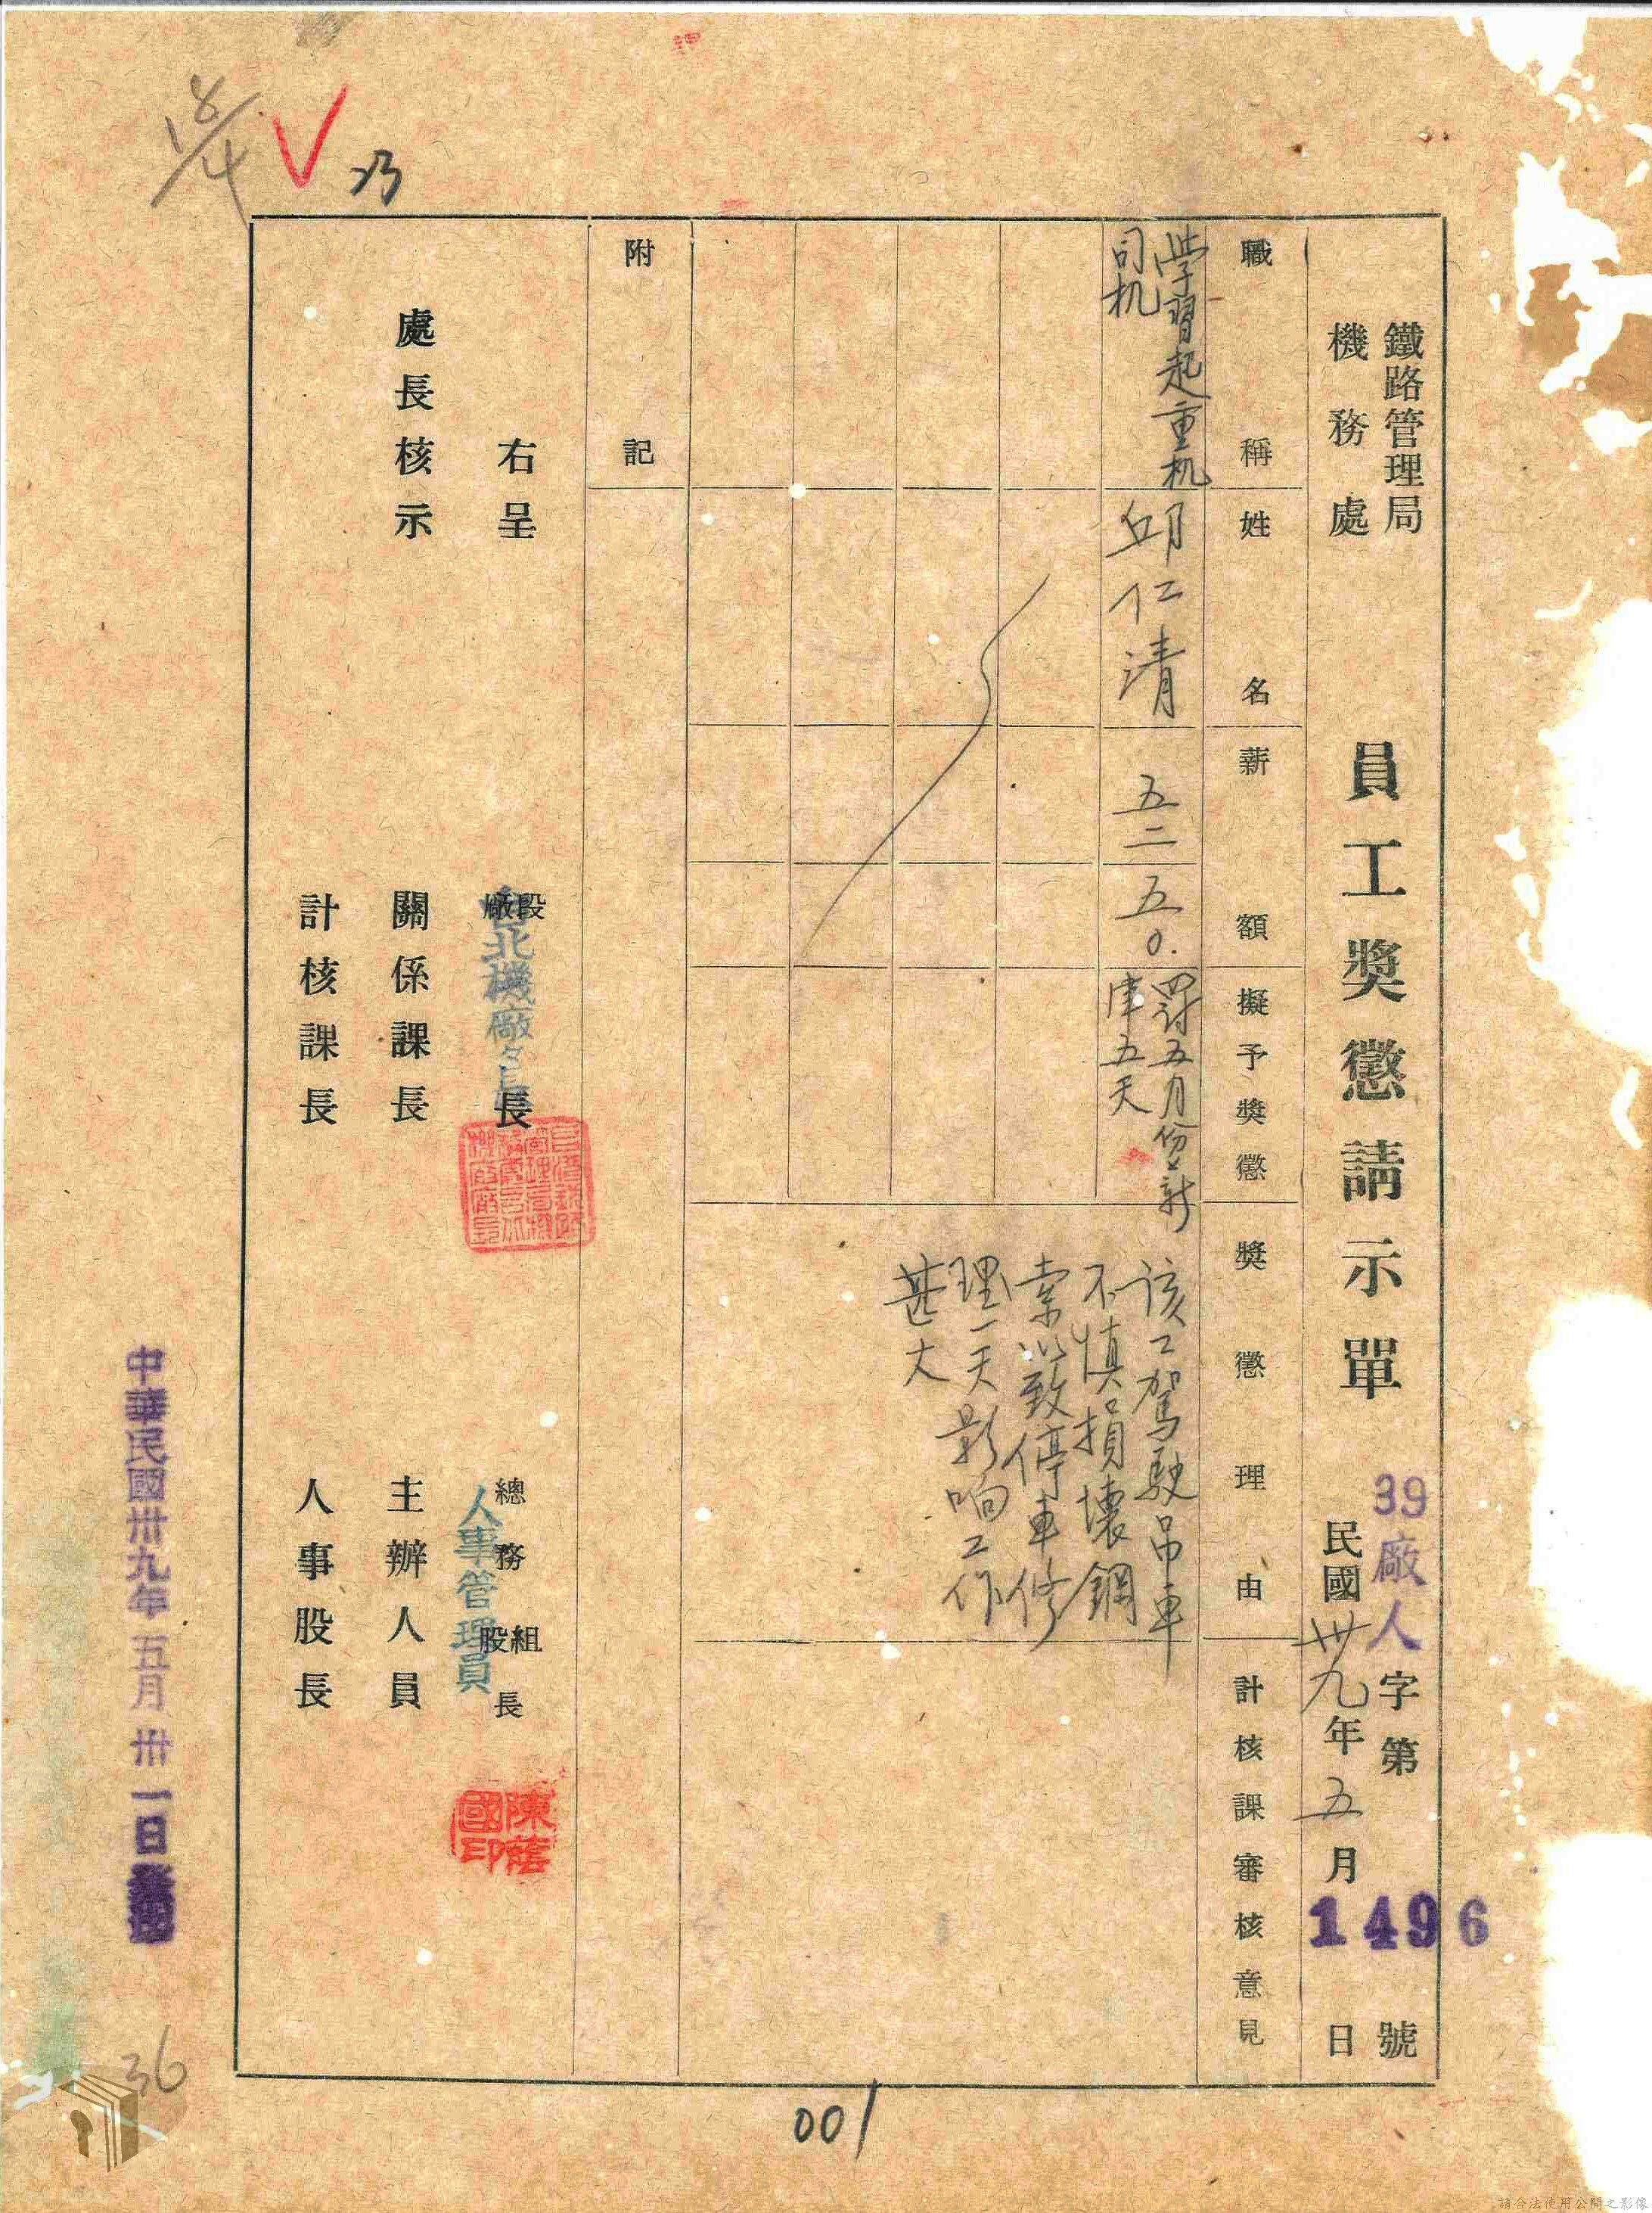 鐵路管理局
機務處
員工獎懲請示單
39廠人字第1496號
民國卅九年五月 日
職稱
姓名
薪額
擬予獎懲
獎懲理由
計核課審核意見
學習起重机
司机
邱仁清
五二
五〇.
罰五月份薪
津五天
該工駕駛吊車
不慎損壞鋼
索以致停車修
理一天影响工作
甚大
附記
右呈
處長核示
段廠長
台北機廠々長
關係課長
計核課長
總務組股長
人事管理員
陳蔭國印
主辦人員
人事股長
中華民國卅九年五月卅一日
36
001
請合法使用公開之影像